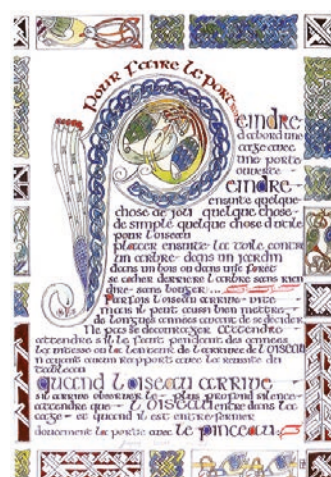 POUR FAIRE LE PORT
Peindre
d'abord une
cage avec
une porte
ouverte
Peindre
ensuite quelque
chose de joli quelque chose
de simple quelque chose d'utile
pour l'oiseau
placer ensuite la toile contre
un arbre dans un jardin
dans un bois ou dans une forêt
se cacher derrière l'arbre sans rien
dire sans bouger ...
Parfois l'oiseau arrive vite
mais il peut aussi bien mettre
de longues années avant de se décider
Ne pas se décourager attendre
attendre s'il le faut pendant des années
la vitesse ou la lenteur de l'arrivée de l'oiseau
n'ayant aucun rapport avec la réussite du
tableau
Quand l'oiseau arrive
s'il arrive observer le plus profond silence
attendre que l'oiseau entre dans la
cage et quand il est entré fermer
doucement la porte avec le pinceau